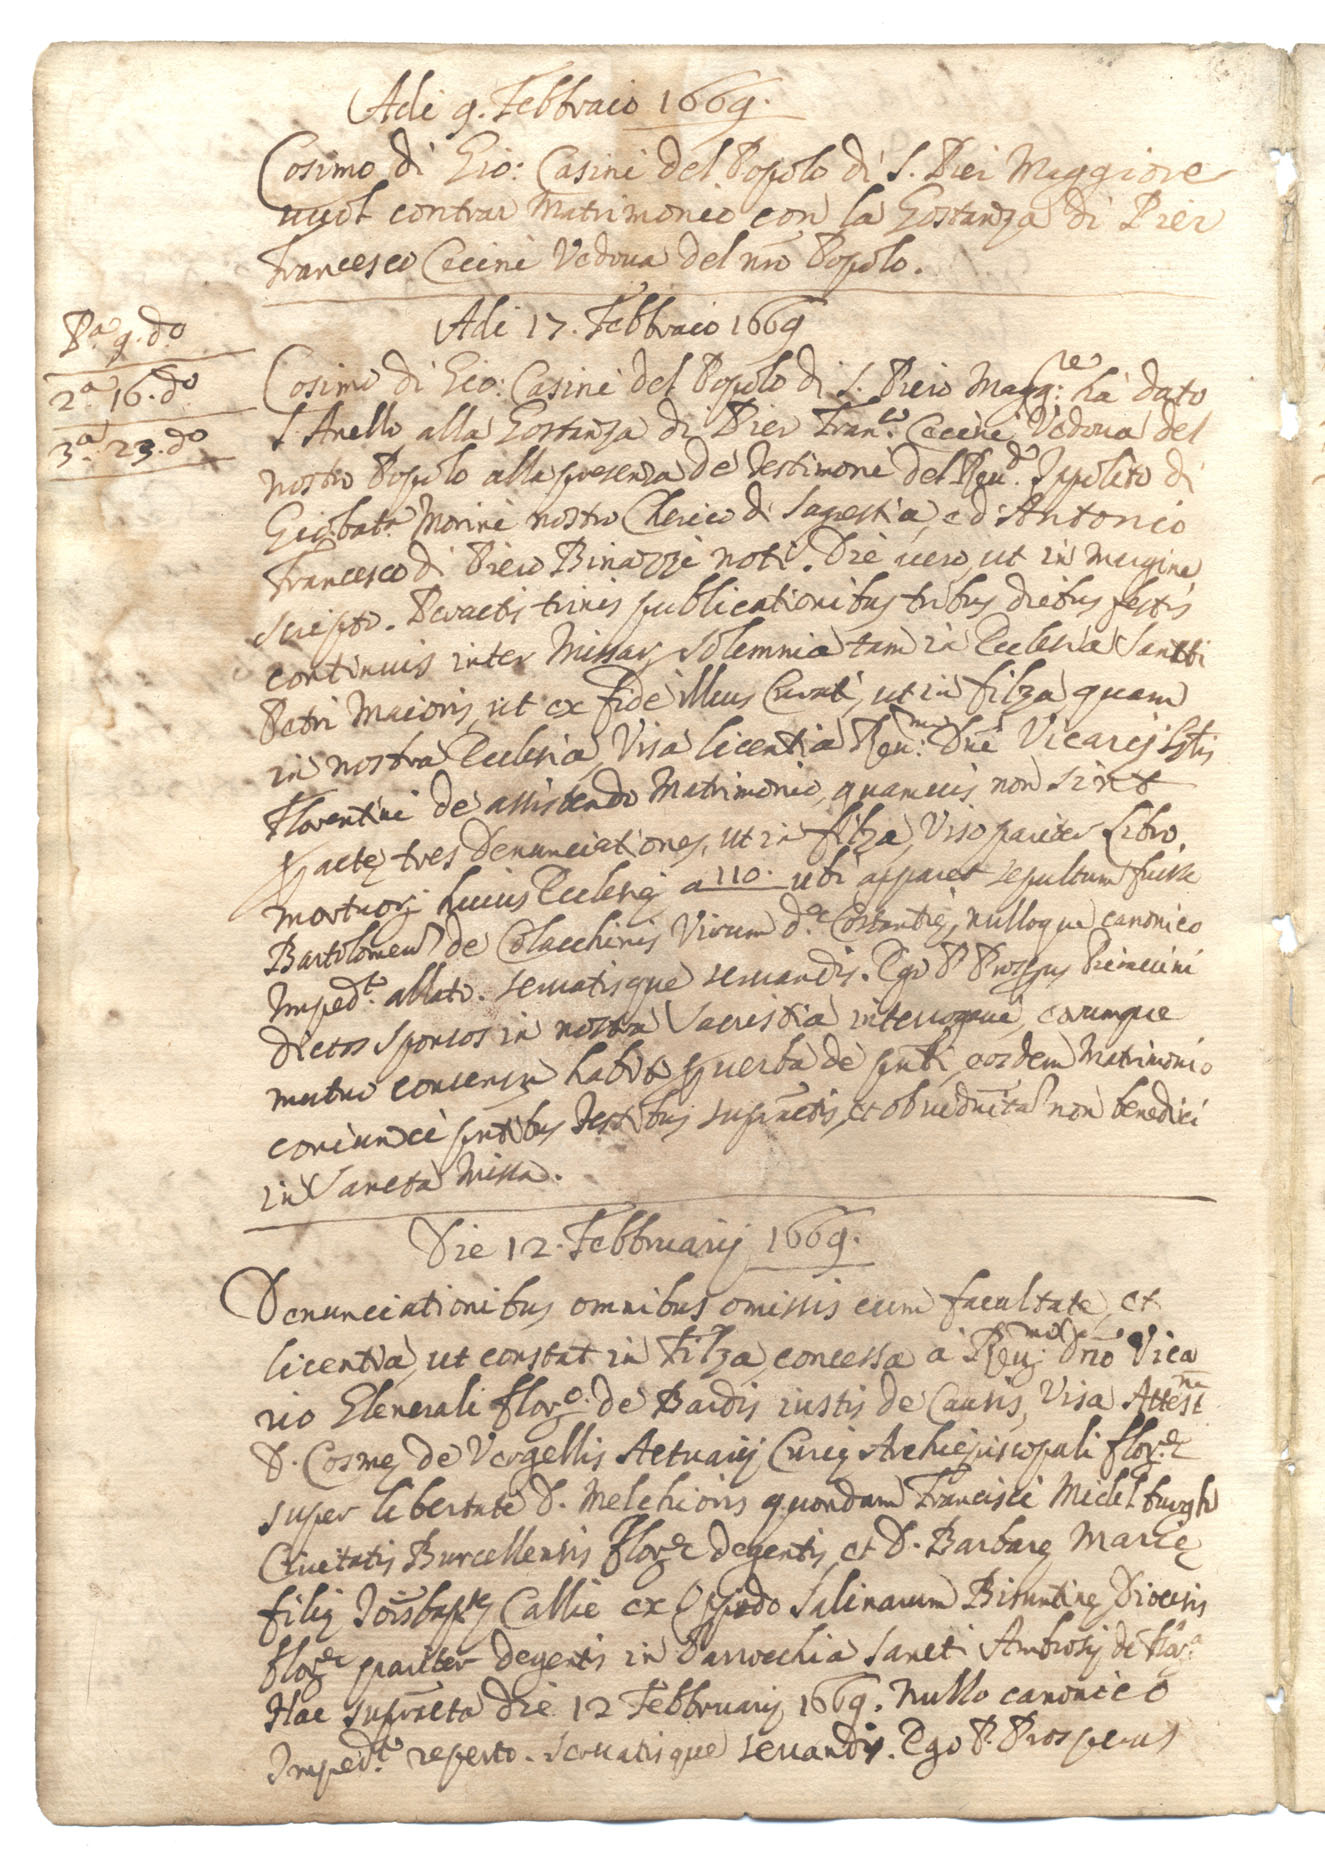 Adi 9. Febbraio 1669.
Cosimo di Gio: Casini del Popolo di S. Pier Maggiore
vuol contrar Matrimonio con la Gostanza di Pier
Francesco Cecini Vedova del nro Popolo.
Adi 17. Febbraio 1669
Pa. 9. do
2a. 16. do
3a. 23. do
Cosimo di Gio: Casini del Popolo di S. Piero Magg:re ha dato
l'Anello alla Gostanza di Pier Fran:co Cecini Vedova del
nostro Popolo alla presenza de Testimoni del Reu:do Ippolito di
Giobat:a Morini nostro Cherico di Sagrestia, e d'Antonio
Francesco di Piero Binazzi noti. Die uero, ut in margine
scripto. Peractis trinis publicationibus tribus diebus festis
continuis inter Missar. solemnia tam in Ecclesia Santti
Petri Maioris, ut ex fide illius Curati, ut in filza quam
in nostra Ecclesia, Visa licentia Reu:mi Dni Vicarij
Florentini de assistendo Matrimonio, quamuis non sint
pacte tres Denunciationes, ut in filza, Viso pariter Libro
mortuor. huius Ecclesię a 110. ubi apparet sepultum fuisse
Bartolomeu de Colacchinis Virum d.ę Costantię, nulloque canonico
Imped:to allato. seruatisque seruandis. Ego P. Prosperus
dictos sponsos in nostra Sacristia interrogaui, eorumque
mutuo consensu habito p uerba de pnti, eosdem Matrimonio
coniunxi pntibus Testibus supractis, et ob uiduita non benedixi
in Sancta Missa.
Die 12. Febbruarij 1669.
Denunciationibus omnibus omissis cum facultate, et
licentia, ut constat in Filza, concessa a Reu:mo Dno Vica
rio Glenerali flor:o de Bardis iustis de Causis, Visa Attest:ne
D. Cosmę de Vergellis Actuarij Curię Archiepiscopali flor:ę
super libertate D. Melchioris quondam Francisci
Ciuitatis Burcellensis flor:ę degentis, et D. Barbarę Marię
filię Joisbaptę Callie ex Oppido Salinarum Bisuntinę Diocesis
flor:ę pariter degentis in Parrochia Sancti Ambrosij de flor:a
Hac supracta die 12 Febbruarij 1669. Nullo canonico
Imped:to reperto. seruatisque seruandis. Ego P. Prosperus